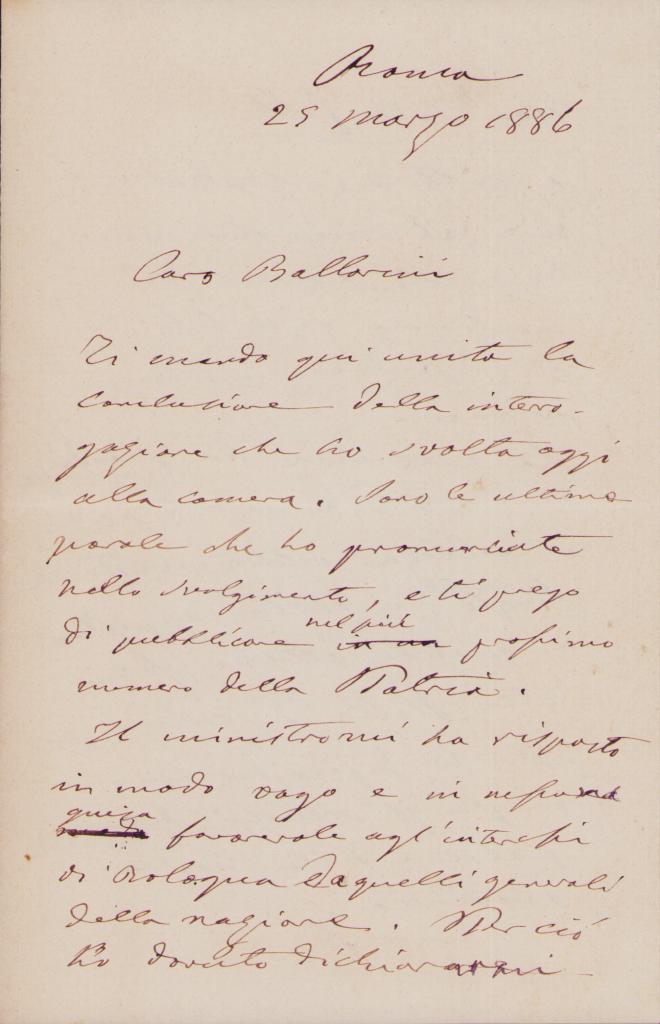 Roma
25 marzo 1886
Caro Ballarini
Ti mando qui unita la
conclusione della interro-
gazione che ho svolta oggi
alla camera. Sono le ultime
parole che ho pronunciate
nello svolgimento, e ti prego
di pubblicare nel più prossimo
numero della Patria.
Il ministro mi ha risposto
in modo vago e in nessuna
guisa favorevole agl'interessi
di Bologna e a quelli generali
della nazione. Per ciò
ho dovuto dichiararmi